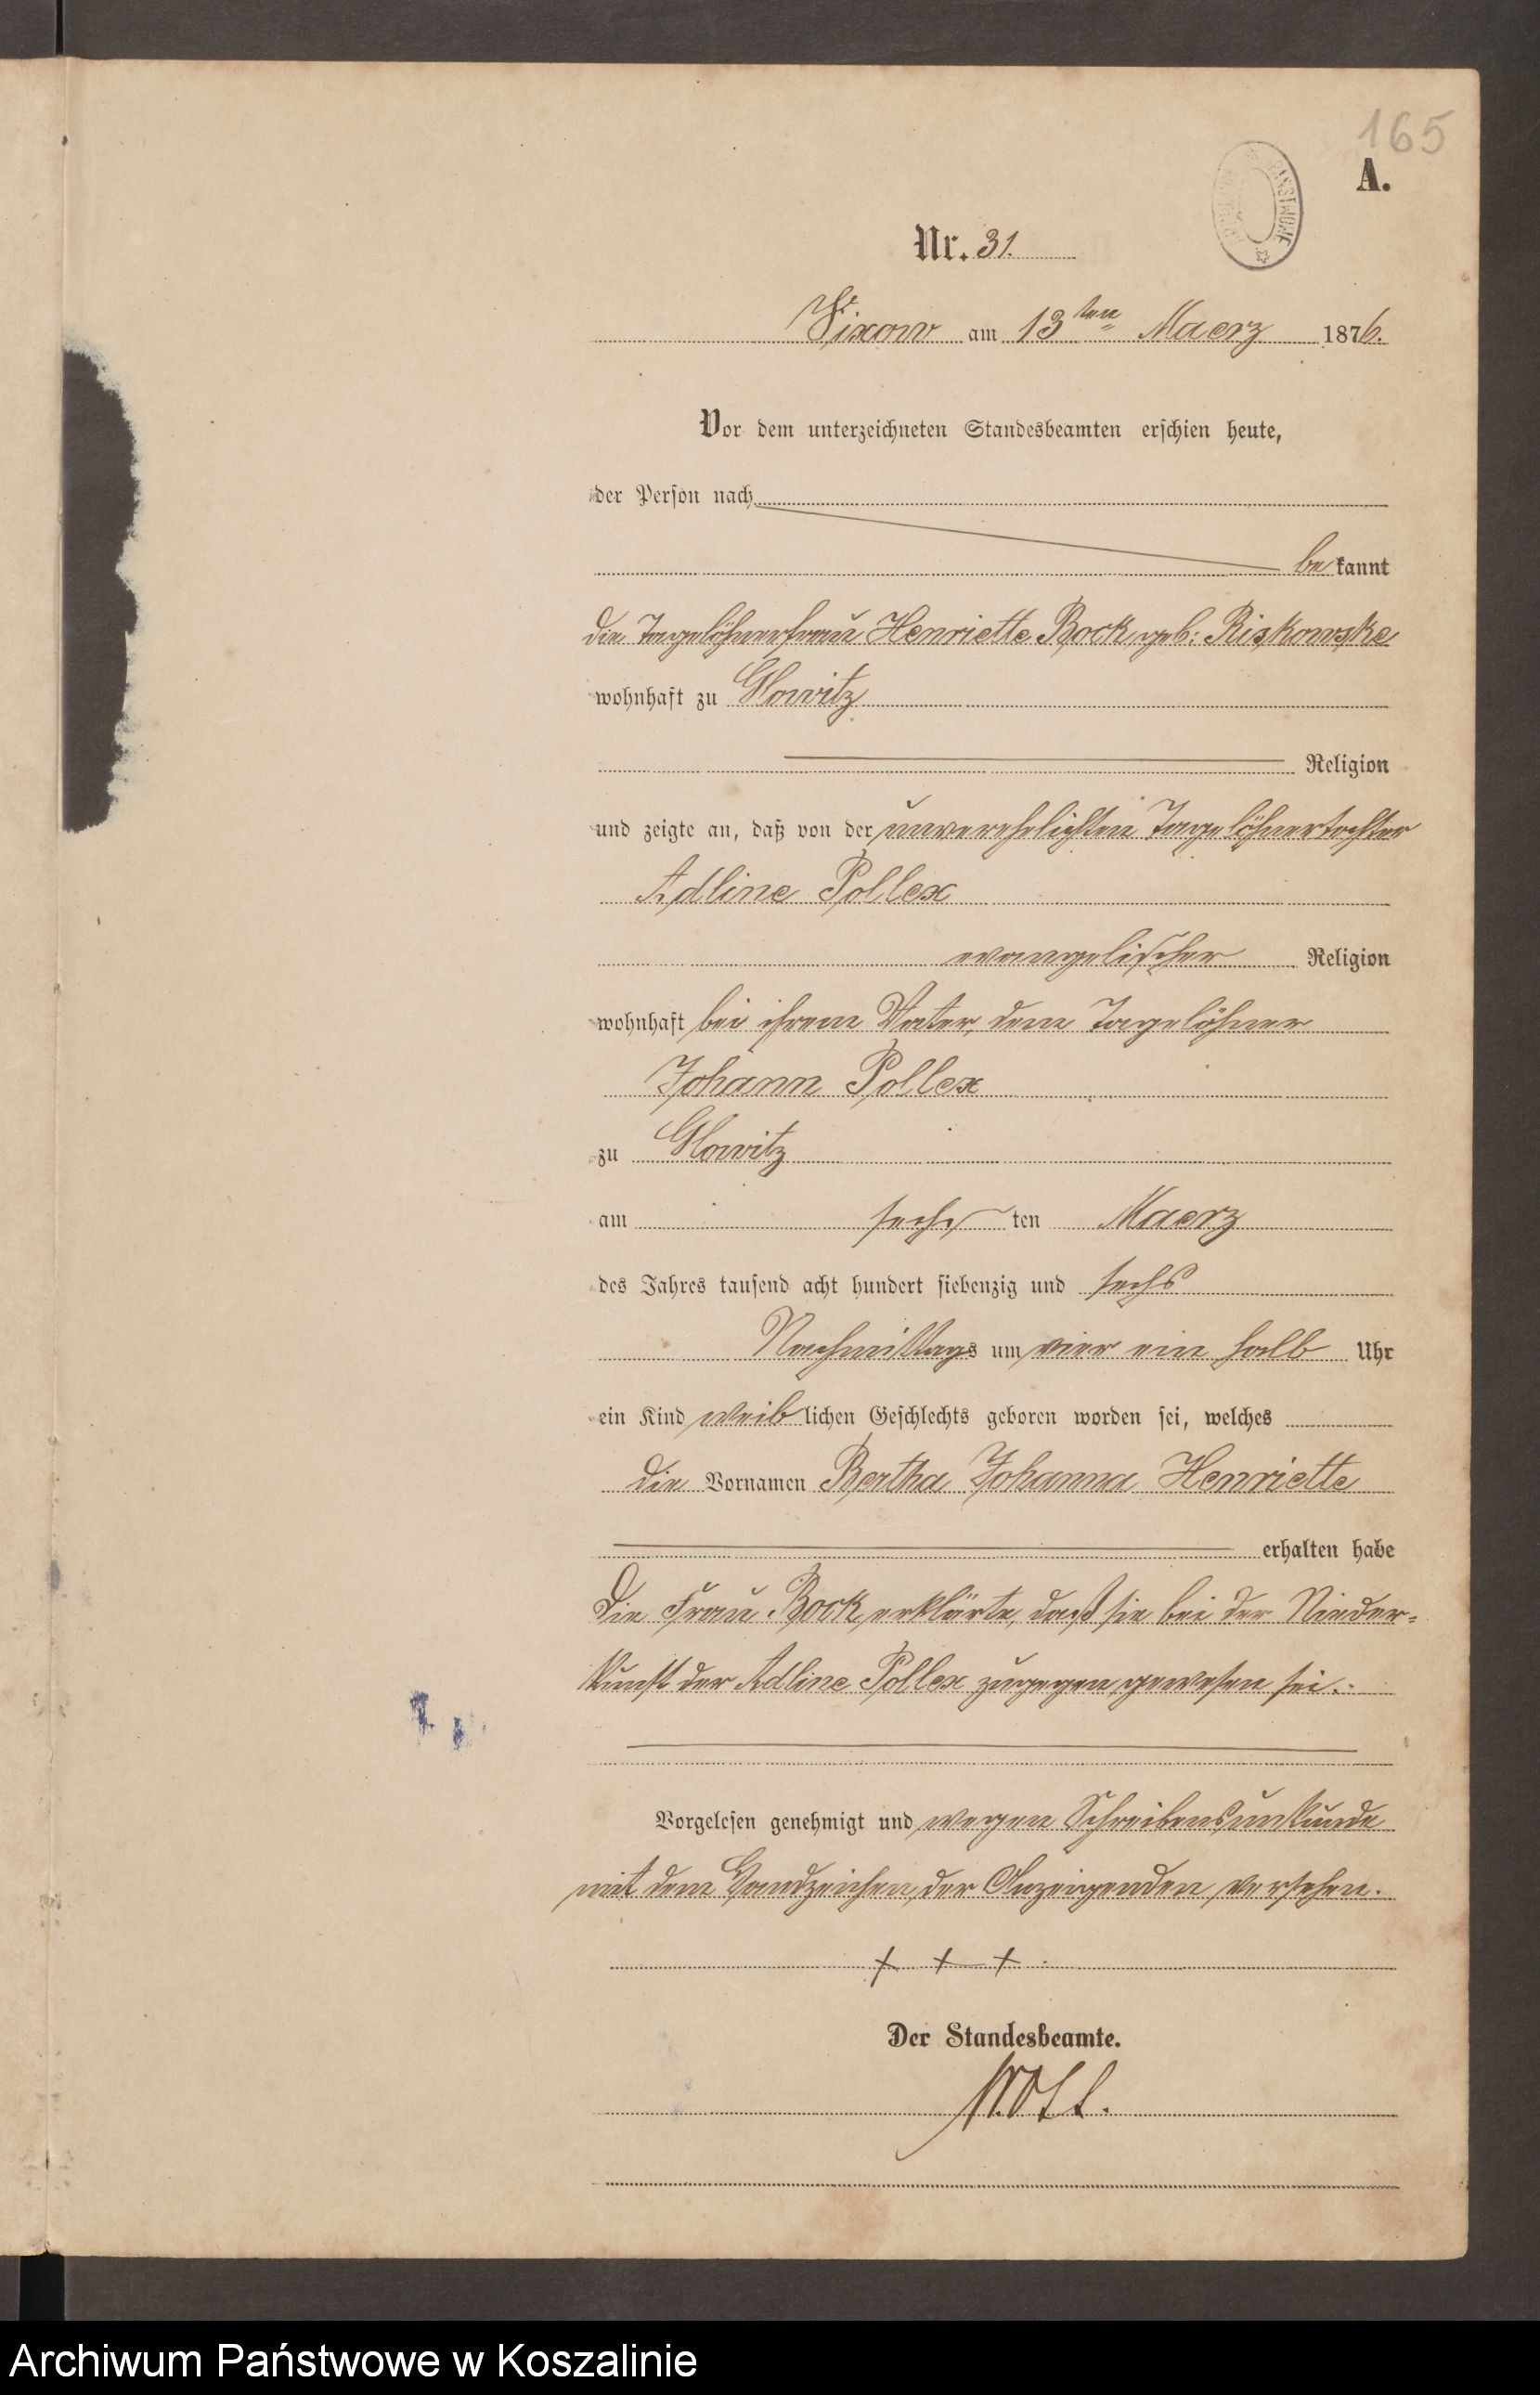 165
A.
Nr. 31.
Vixow am 13ten Maerz 1876.
Vor dem unterzeichneten Standesbeamten erschien heute,
der Person nach
bekannt
die Tagelöhnerfrau Henriette Bock, geb: Riskowske
wohnhaft zu Glowitz
Religion
und zeigte an, daß von der unverehelichten Tagelöhnertochter
Adline Pollex
evangelischer Religion
wohnhaft bei ihrem Vater, dem Tagelöhner
Johann Pollex
zu Glowitz
am sechsten Maerz
des Jahres tausend acht hundert siebenzig und sechs
Nachmittags um vier ein halb Uhr
ein Kind weiblichen Geschlechts geboren worden sei, welches
die Vornamen Bertha Johanna Henriette
erhalten habe
Die Frau Bock, erklärte, daß sie bei der Nieder=
kunft der Adline Pollex zugegen gewesen sei.
Vorgelesen genehmigt und wegen Schreibensunkunde
mit dem Handzeichen der Anzeigenden versehen.
+ + +
Der Standesbeamte.
Archiwum Państwowe w Koszalinie